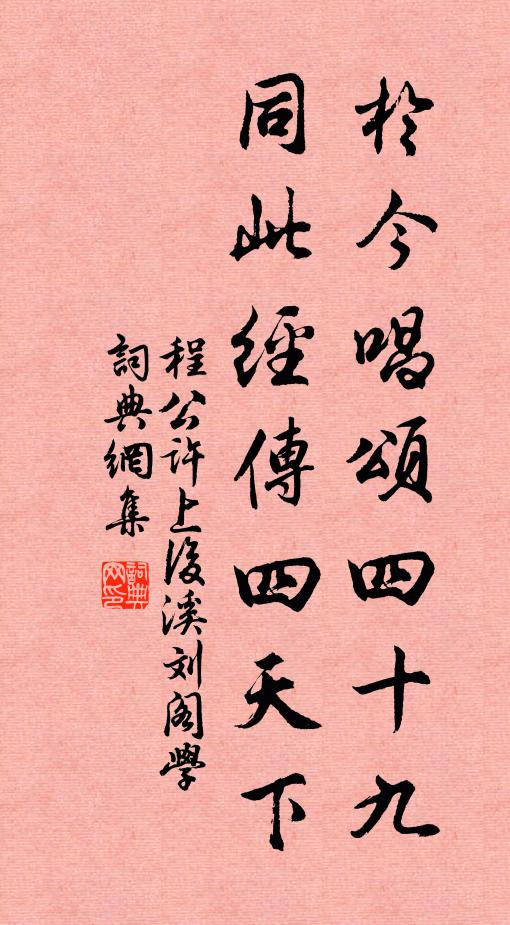 於今唱頌四十九
同此經傳四天下
程公許上後溪刘阁學
詞典網集
詞典网印